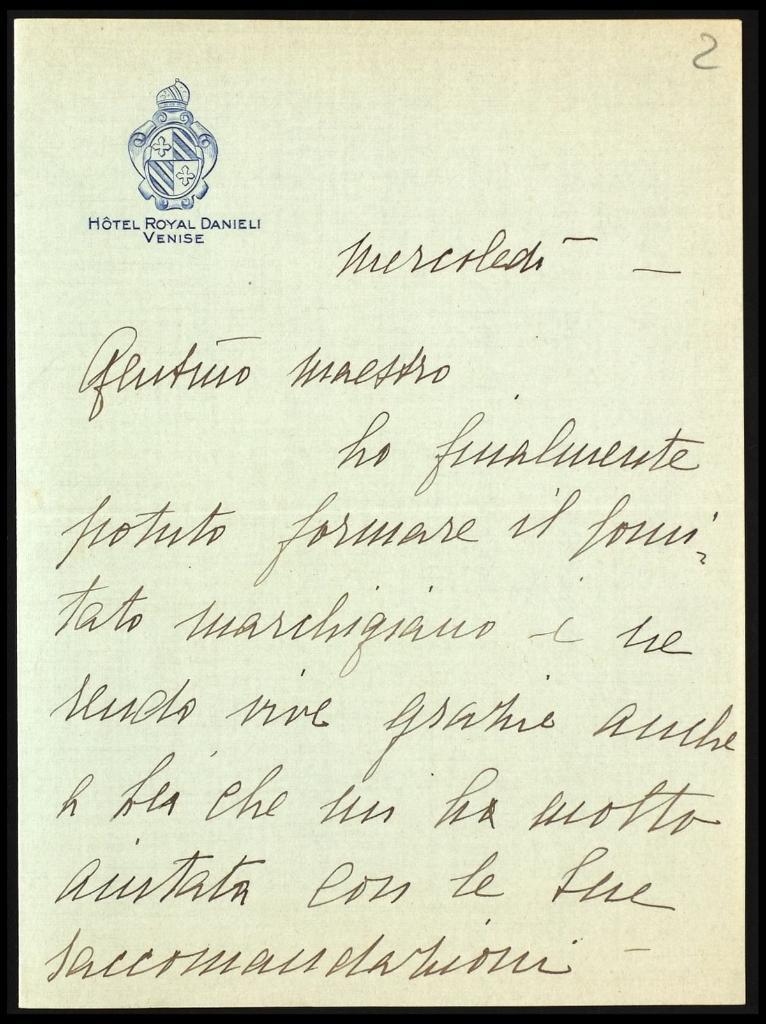 2
HÔTEL ROYAL DANIELI
VENISE
Mercoledì —
Gentmo Maestro
ho finalmente
potuto formare il Comi-
tato marchigiano e ne
rendo vive grazie anche
a Lei che mi ha molto
aiutata con le Sue
raccomandazioni —